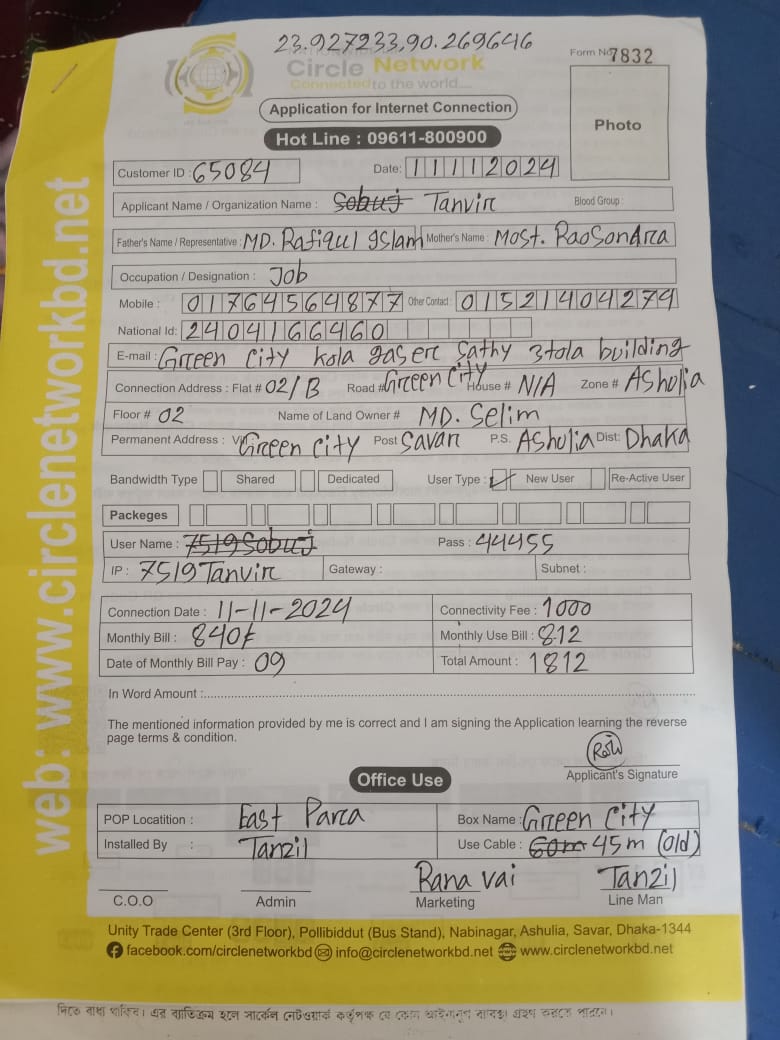 23.927233,90.269646
Circle Network
Connected to the world....
Form No 7832
Application for Internet Connection
Photo
Hot Line : 09611-800900
Customer ID : 65084 Date: 11112024
Applicant Name / Organization Name : Sobuj Tanvir Blood Group :
Father's Name / Representative : MD. Rafiqul Islam Mother's Name : Most. Raosondra
Occupation / Designation : Job
Mobile : 01764564877 Other Contact : 01521404274
National Id: 2404166460
E-mail : Green City kola gaser sathy 3tola building
Connection Address : Flat # 02/B Road # Green City House # N/A Zone # Asholia
Floor # 02 Name of Land Owner # MD. Selim
Permanent Address : Vill Green City Post Savar P.S. Asholia Dist: Dhaka
Bandwidth Type Shared Dedicated User Type : ✓ New User Re-Active User
Packeges
User Name : 7519Sobuj Pass : 44455
IP : 7519Tanvir Gateway : Subnet :
Connection Date : 11-11-2024 Connectivity Fee : 1000
Monthly Bill : 840৳ Monthly Use Bill : 812
Date of Monthly Bill Pay : 09 Total Amount : 1812
In Word Amount :
The mentioned information provided by me is correct and I am signing the Application learning the reverse
page terms & condition.
Applicant's Signature
Office Use
POP Locatition : East Para Box Name : Green City
Installed By : Tanzil Use Cable : 60m 45m (old)
Rana vai Tanzil
C.O.O Admin Marketing Line Man
Unity Trade Center (3rd Floor), Pollibiddut (Bus Stand), Nabinagar, Ashulia, Savar, Dhaka-1344
facebook.com/circlenetworkbd info@circlenetworkbd.net www.circlenetworkbd.net
web: www.circlenetworkbd.net
দিতে বাধ্য থাকিব। এর ব্যতিক্রম হলে সার্কেল নেটওয়ার্ক কর্তৃপক্ষ যে কোন আইনানুগ ব্যবস্থা গ্রহণ করতে পারবে।